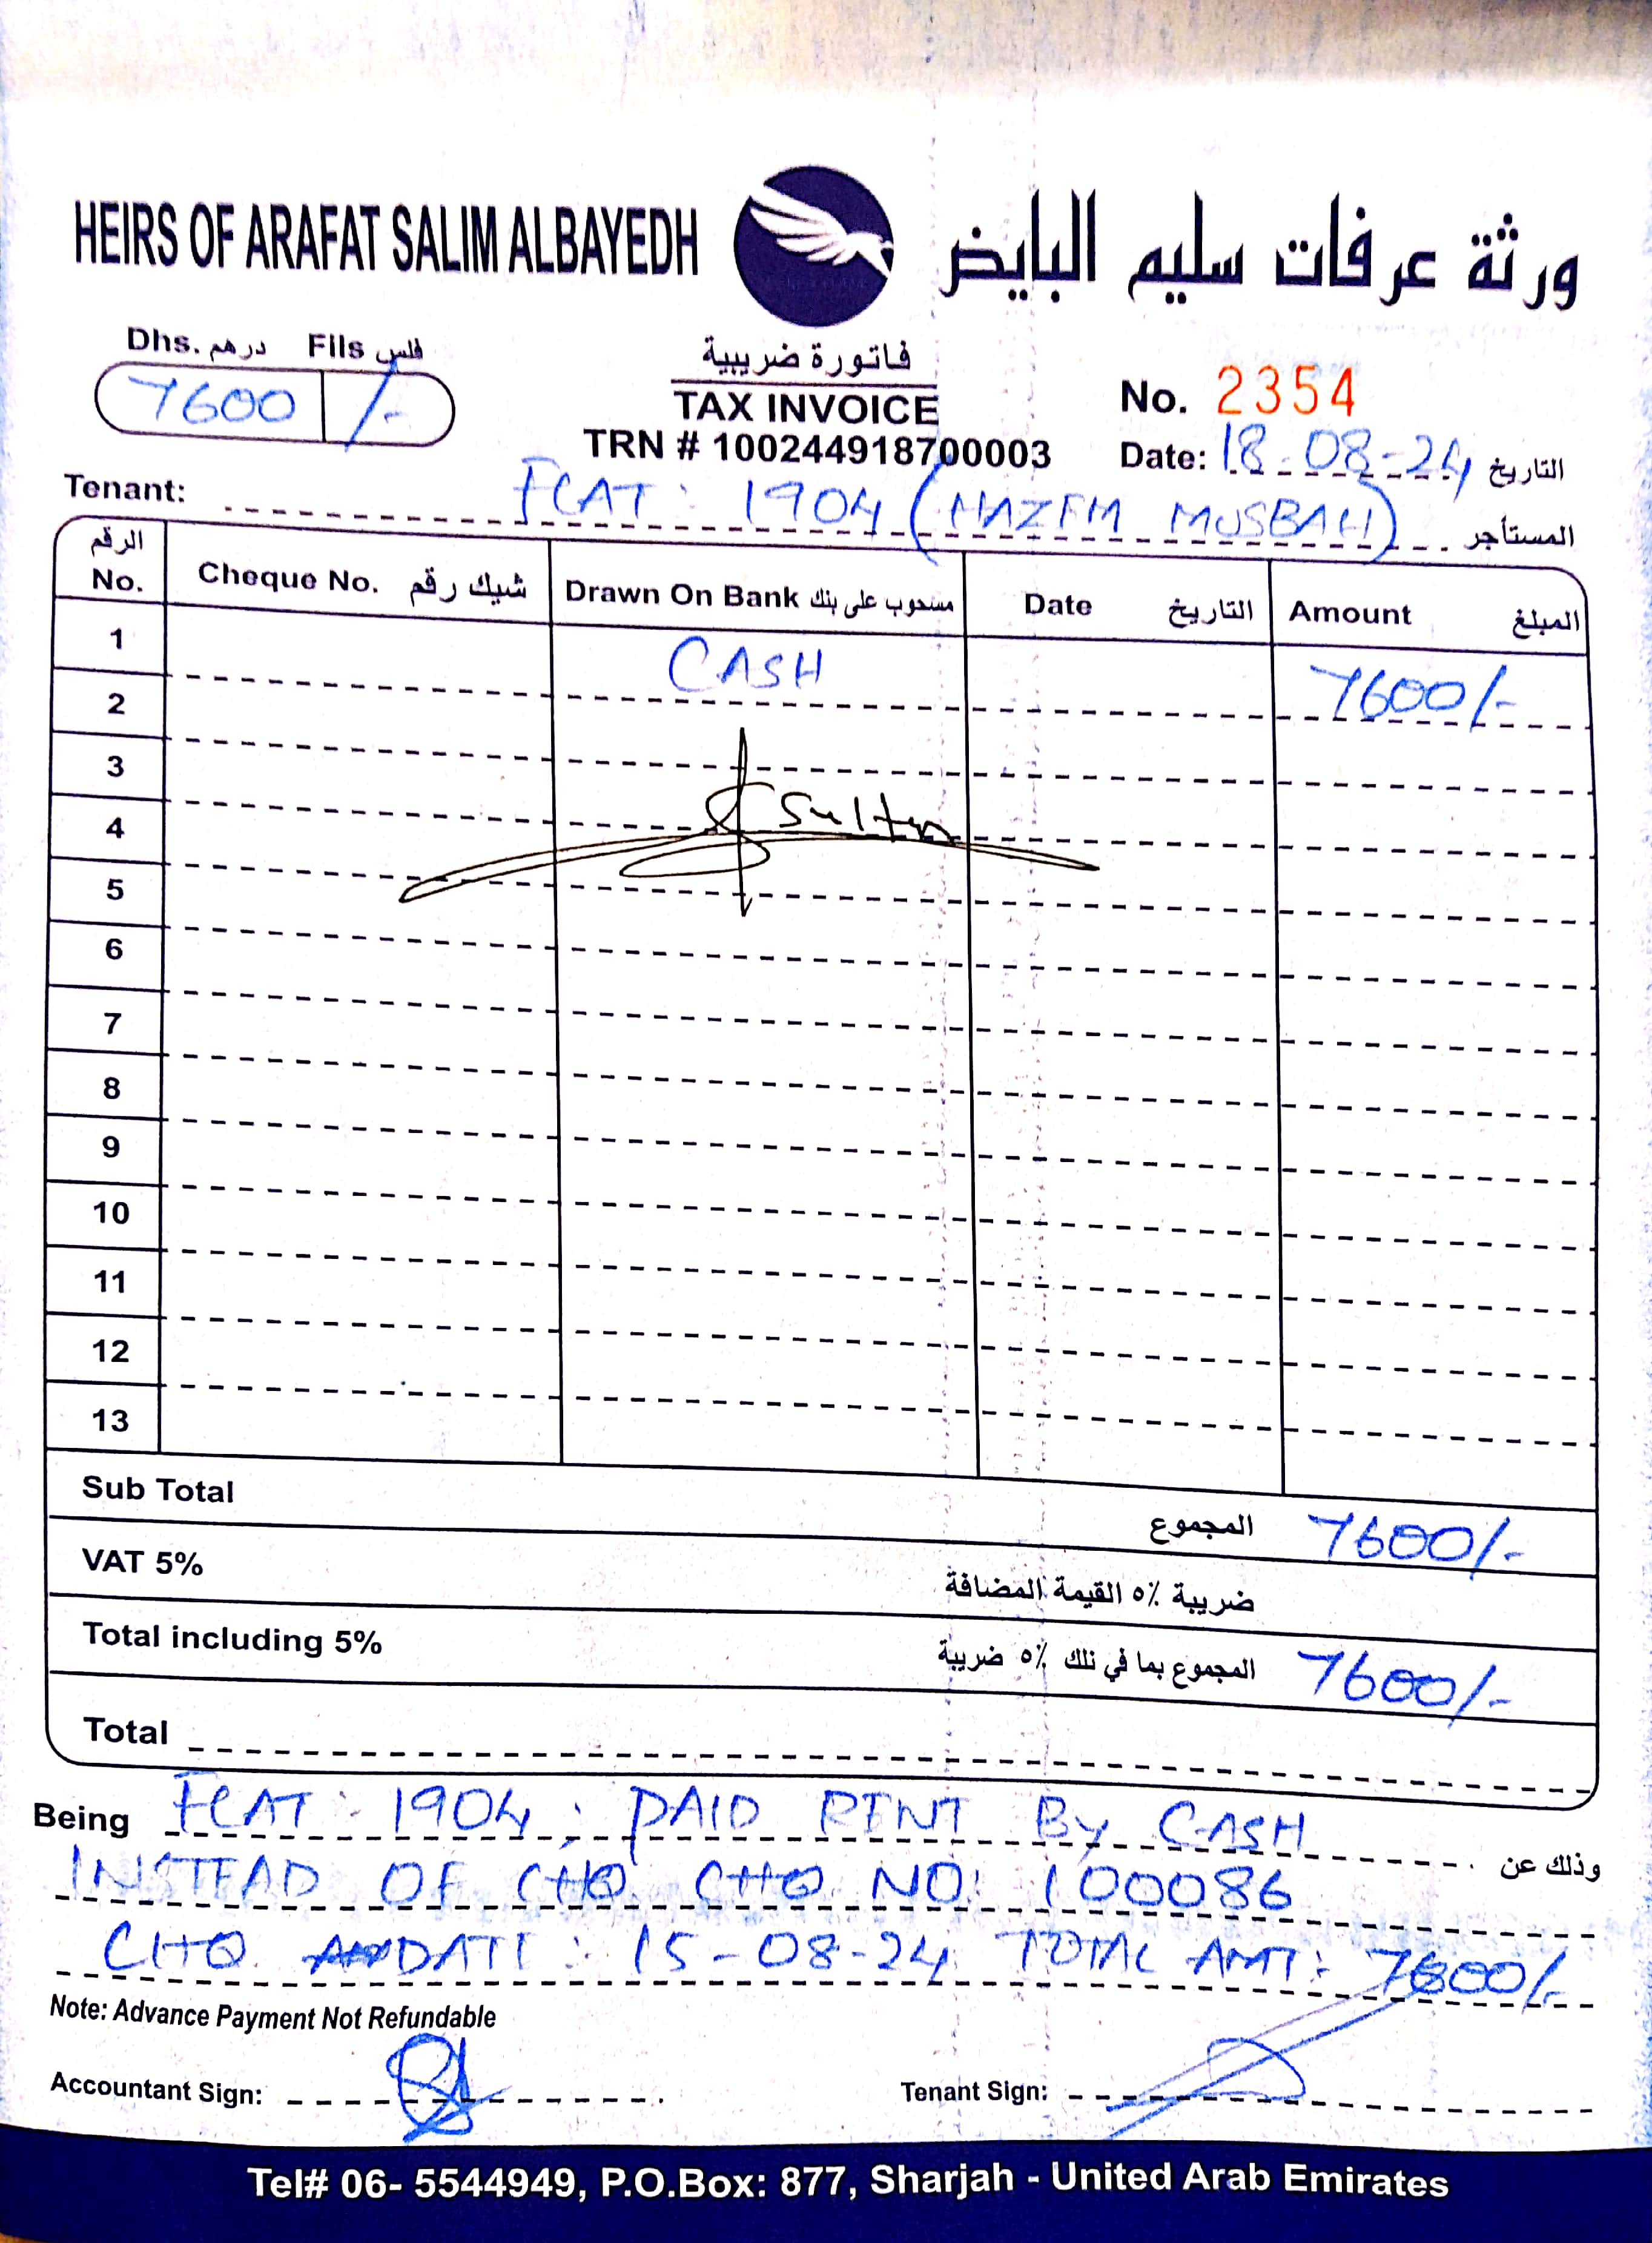 HEIRS OF ARAFAT SALIM ALBAYEDH ورثة عرفات سليم البايض
Dhs. درهم Fils فلس
7600 /-
فاتورة ضريبية
TAX INVOICE
TRN # 100244918700003
No. 2354
Date: 18-08-24 التاريخ
Tenant: FLAT: 1904 (HAZEM MUSBAH) المستأجر
الرقم No. Cheque No. شيك رقم Drawn On Bank مسحوب على بنك Date التاريخ Amount المبلغ
1 CASH 7600/-
2
3
4 Sultan
5
6
7
8
9
10
11
12
13
Sub Total المجموع 7600/-
VAT 5% ضريبة ٥٪ القيمة المضافة
Total including 5% المجموع بما في ذلك ٥٪ ضريبة 7600/-
Total
Being FLAT: 1904, PAID RENT BY CASH وذلك عن
INSTEAD OF CHQ. CHQ NO: 100086
CHQ. DATE: 15-08-24 TOTAL AMT: 7600/-
Note: Advance Payment Not Refundable
Accountant Sign: Tenant Sign:
Tel# 06- 5544949, P.O.Box: 877, Sharjah - United Arab Emirates